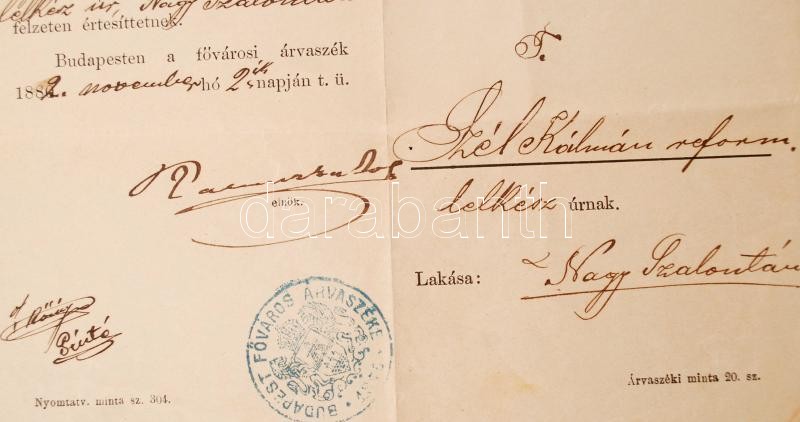 lelkész úr, Nagy Szalontán
felzeten értesíttetnek.
Budapesten a fővárosi árvaszék
1882. november hó 2ik napján t. ü.
elnök.
BUDAPEST FŐVÁROS ÁRVASZÉKE
Nyomtatv. minta sz. 304.
T.
Szél Kálmán reform.
lelkész úrnak.
Lakása: Nagy Szalontán
Árvaszéki minta 20. sz.
darabanth